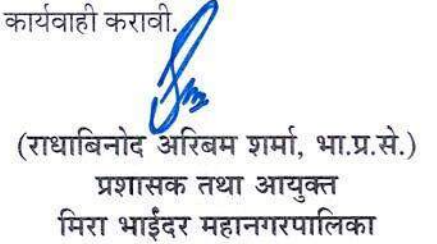 कार्यवाही करावी.
(राधाबिनोद अरिबम शर्मा, भा.प्र.से.)
प्रशासक तथा आयुक्त
मिरा भाईंदर महानगरपालिका